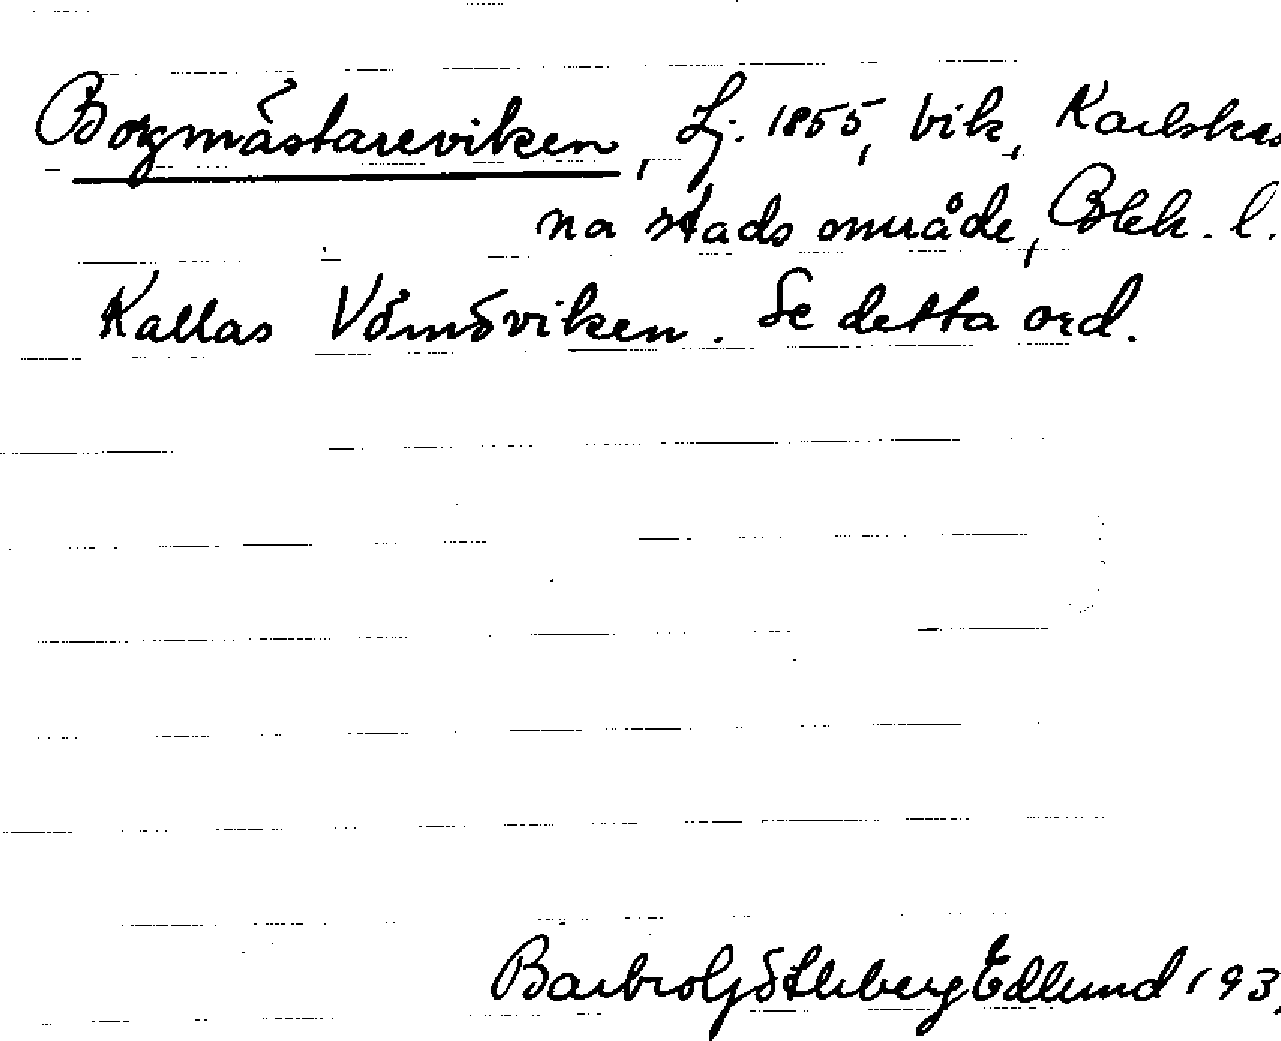 Borgmästareviken, Lj. 1855, vik, Karlskro
na stads område, Blek. l.
Kallas Vämöviken. Se detta ord.
Barbro Göthberg Edlund 193